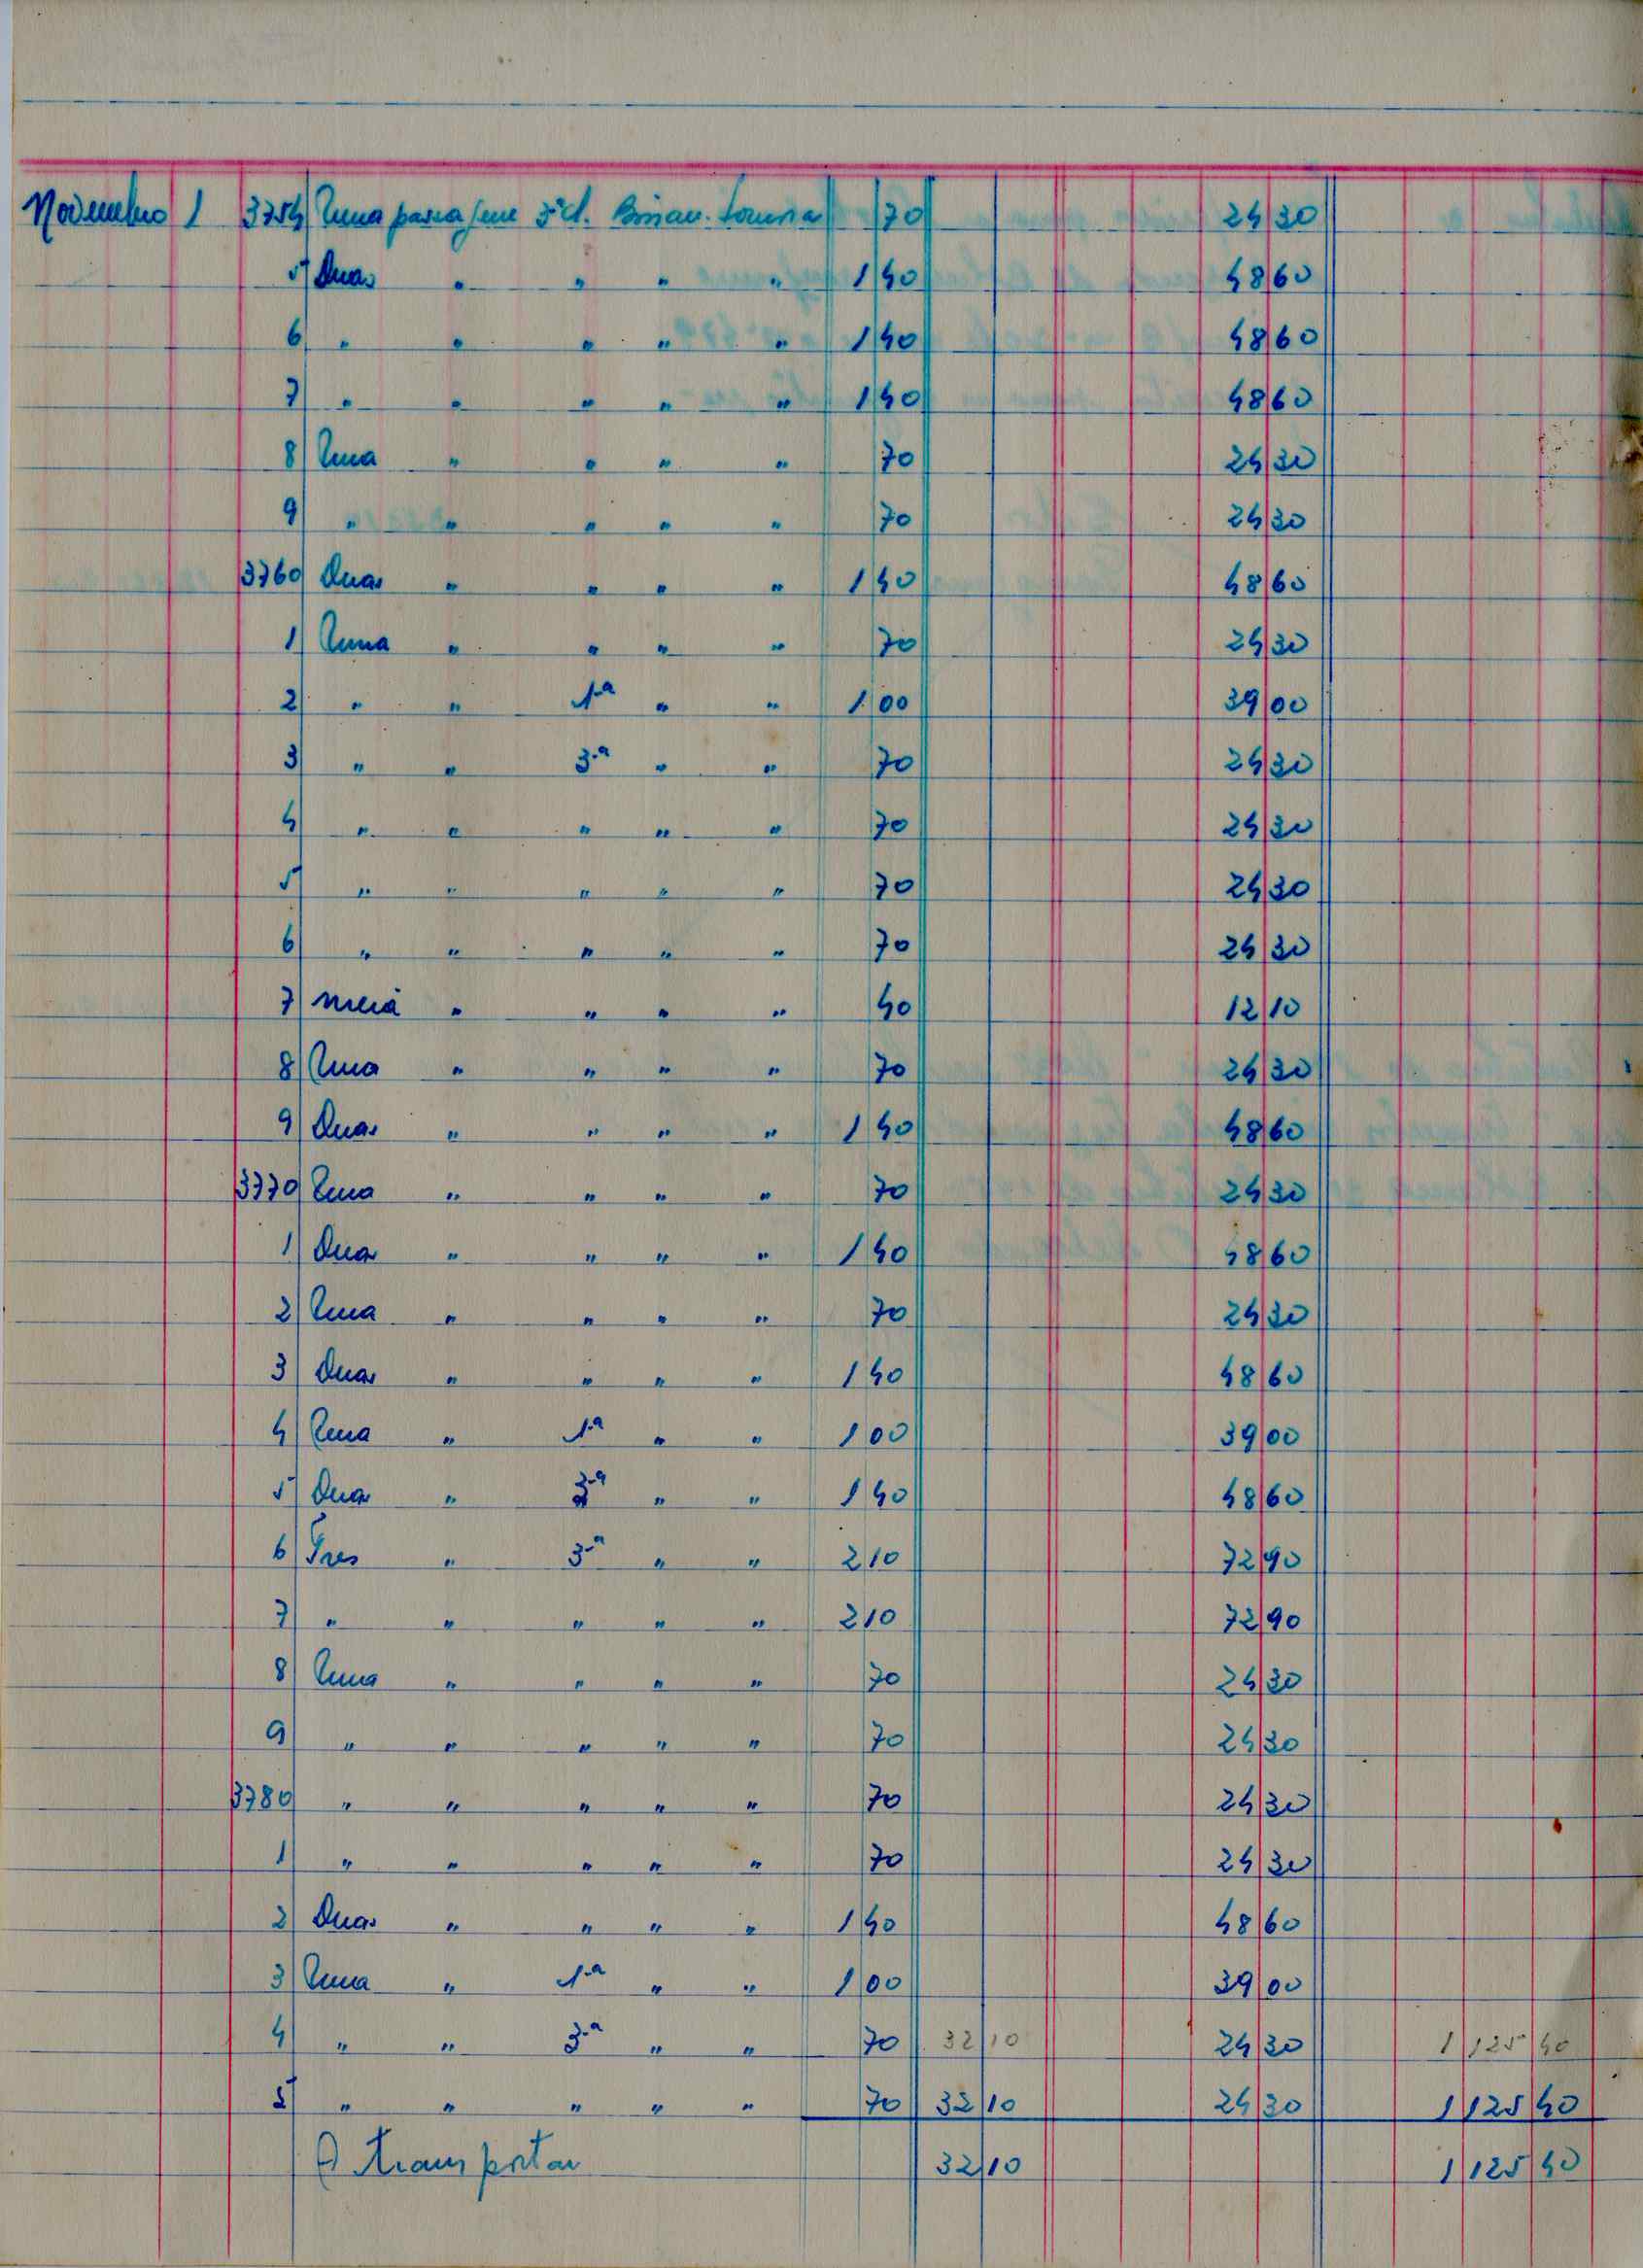 Novembro 1 3754 Uma passagem 3ª cl. Bissau. 70 24 30
5 Duas " " " " 1 40 48 60
6 " " " " " 1 40 48 60
7 " " " " " 1 40 48 60
8 Uma " " " " 70 24 30
9 " " " " " 70 24 30
3760 Duas " " " " 1 40 48 60
1 Uma " " " " 70 24 30
2 " " 1ª " " 1 00 39 00
3 " " 3ª " " 70 24 30
4 " " " " " 70 24 30
5 " " " " " 70 24 30
6 " " " " " 70 24 30
7 meia " " " " 40 12 10
8 Uma " " " " 70 24 30
9 Duas " " " " 1 40 48 60
3770 Uma " " " " 70 24 30
1 Duas " " " " 1 40 48 60
2 Uma " " " " 70 24 30
3 Duas " " " " 1 40 48 60
4 Uma " 1ª " " 1 00 39 00
5 Duas " 3ª " " 1 40 48 60
6 Tres " 3ª " " 2 10 72 90
7 " " " " " 2 10 72 90
8 Uma " " " " 70 24 30
9 " " " " " 70 24 30
3780 " " " " " 70 24 30
1 " " " " " 70 24 30
2 Duas " " " " 1 40 48 60
3 Uma " 1ª " " 1 00 39 00
4 " " 3ª " " 70 32 10 24 30 1 125 40
5 " " " " " 70 32 10 24 30 1 125 40
A transportar 32 10 1 125 40